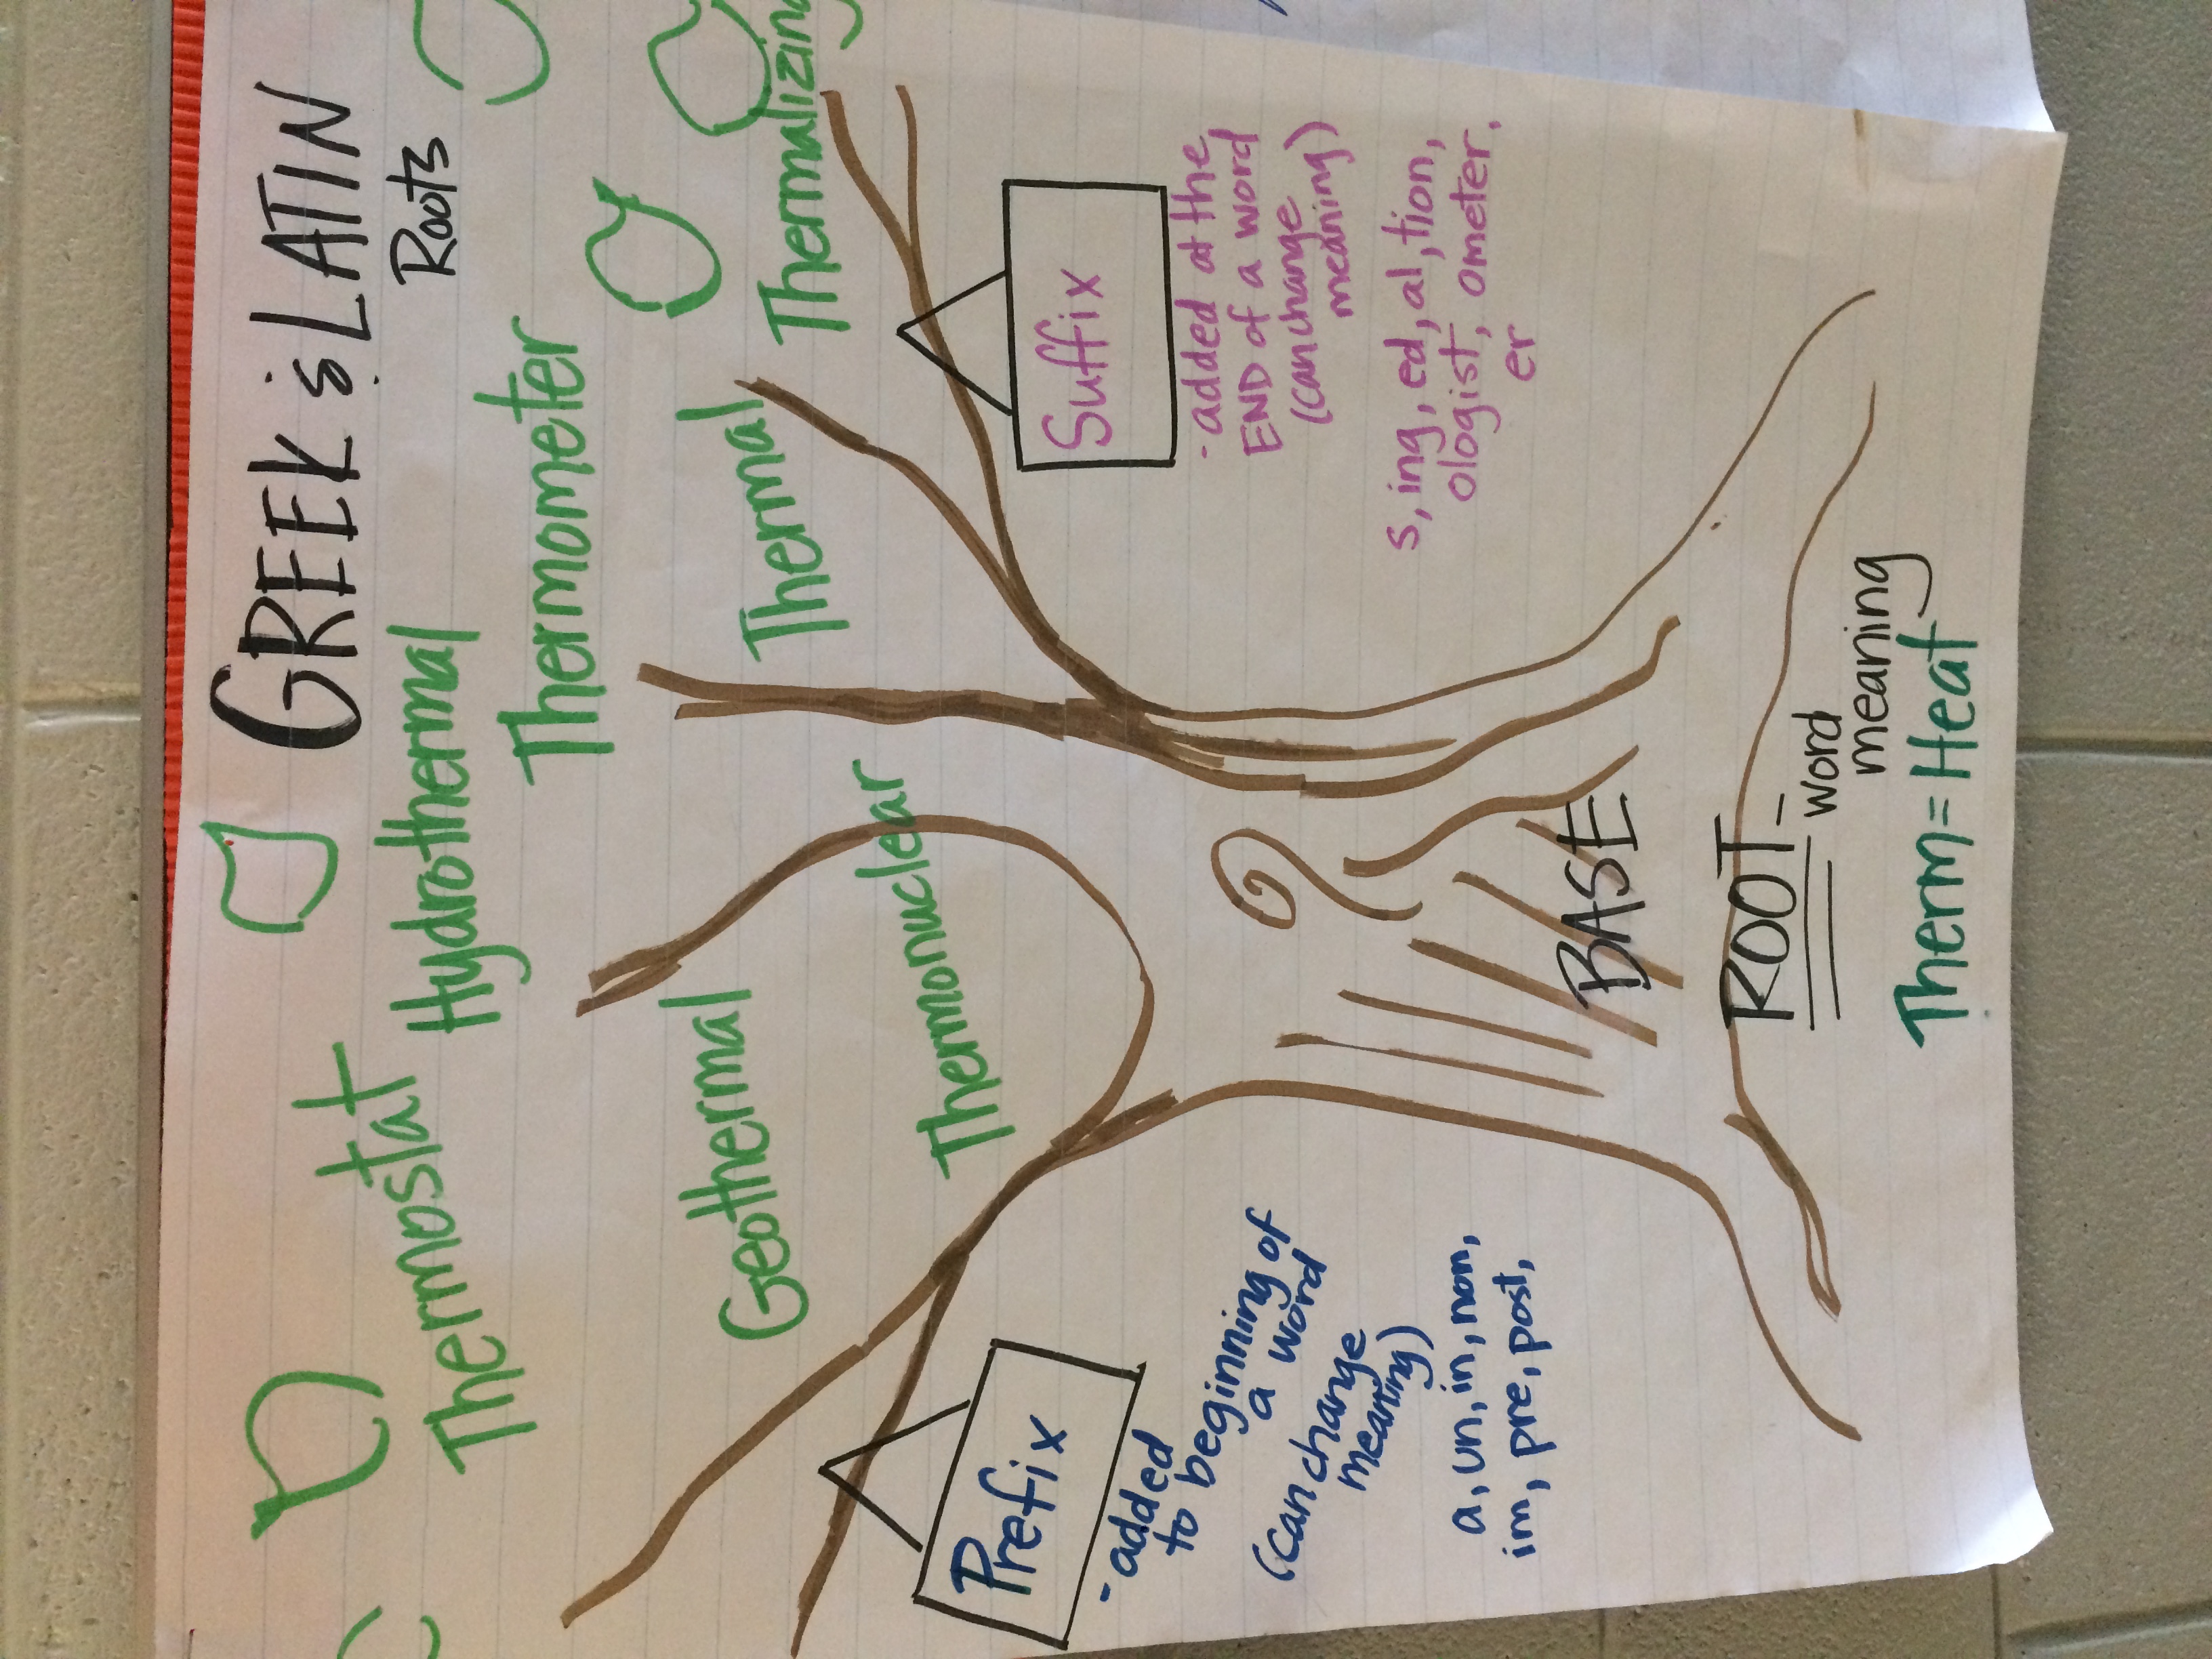 GREEK & LATIN
Roots
Thermostat
Hydrothermal
Thermometer
Geothermal
Thermal
Thermalizing
Thermonuclear
Prefix
-added
to beginning of
a word
(can change
meaning)
a, un, in, non,
im, pre, post,
Suffix
-added at the
END of a word
(can change
meaning)
s, ing, ed, al, tion,
ologist, ometer,
er
BASE
ROOT-
word
meaning
Therm = Heat